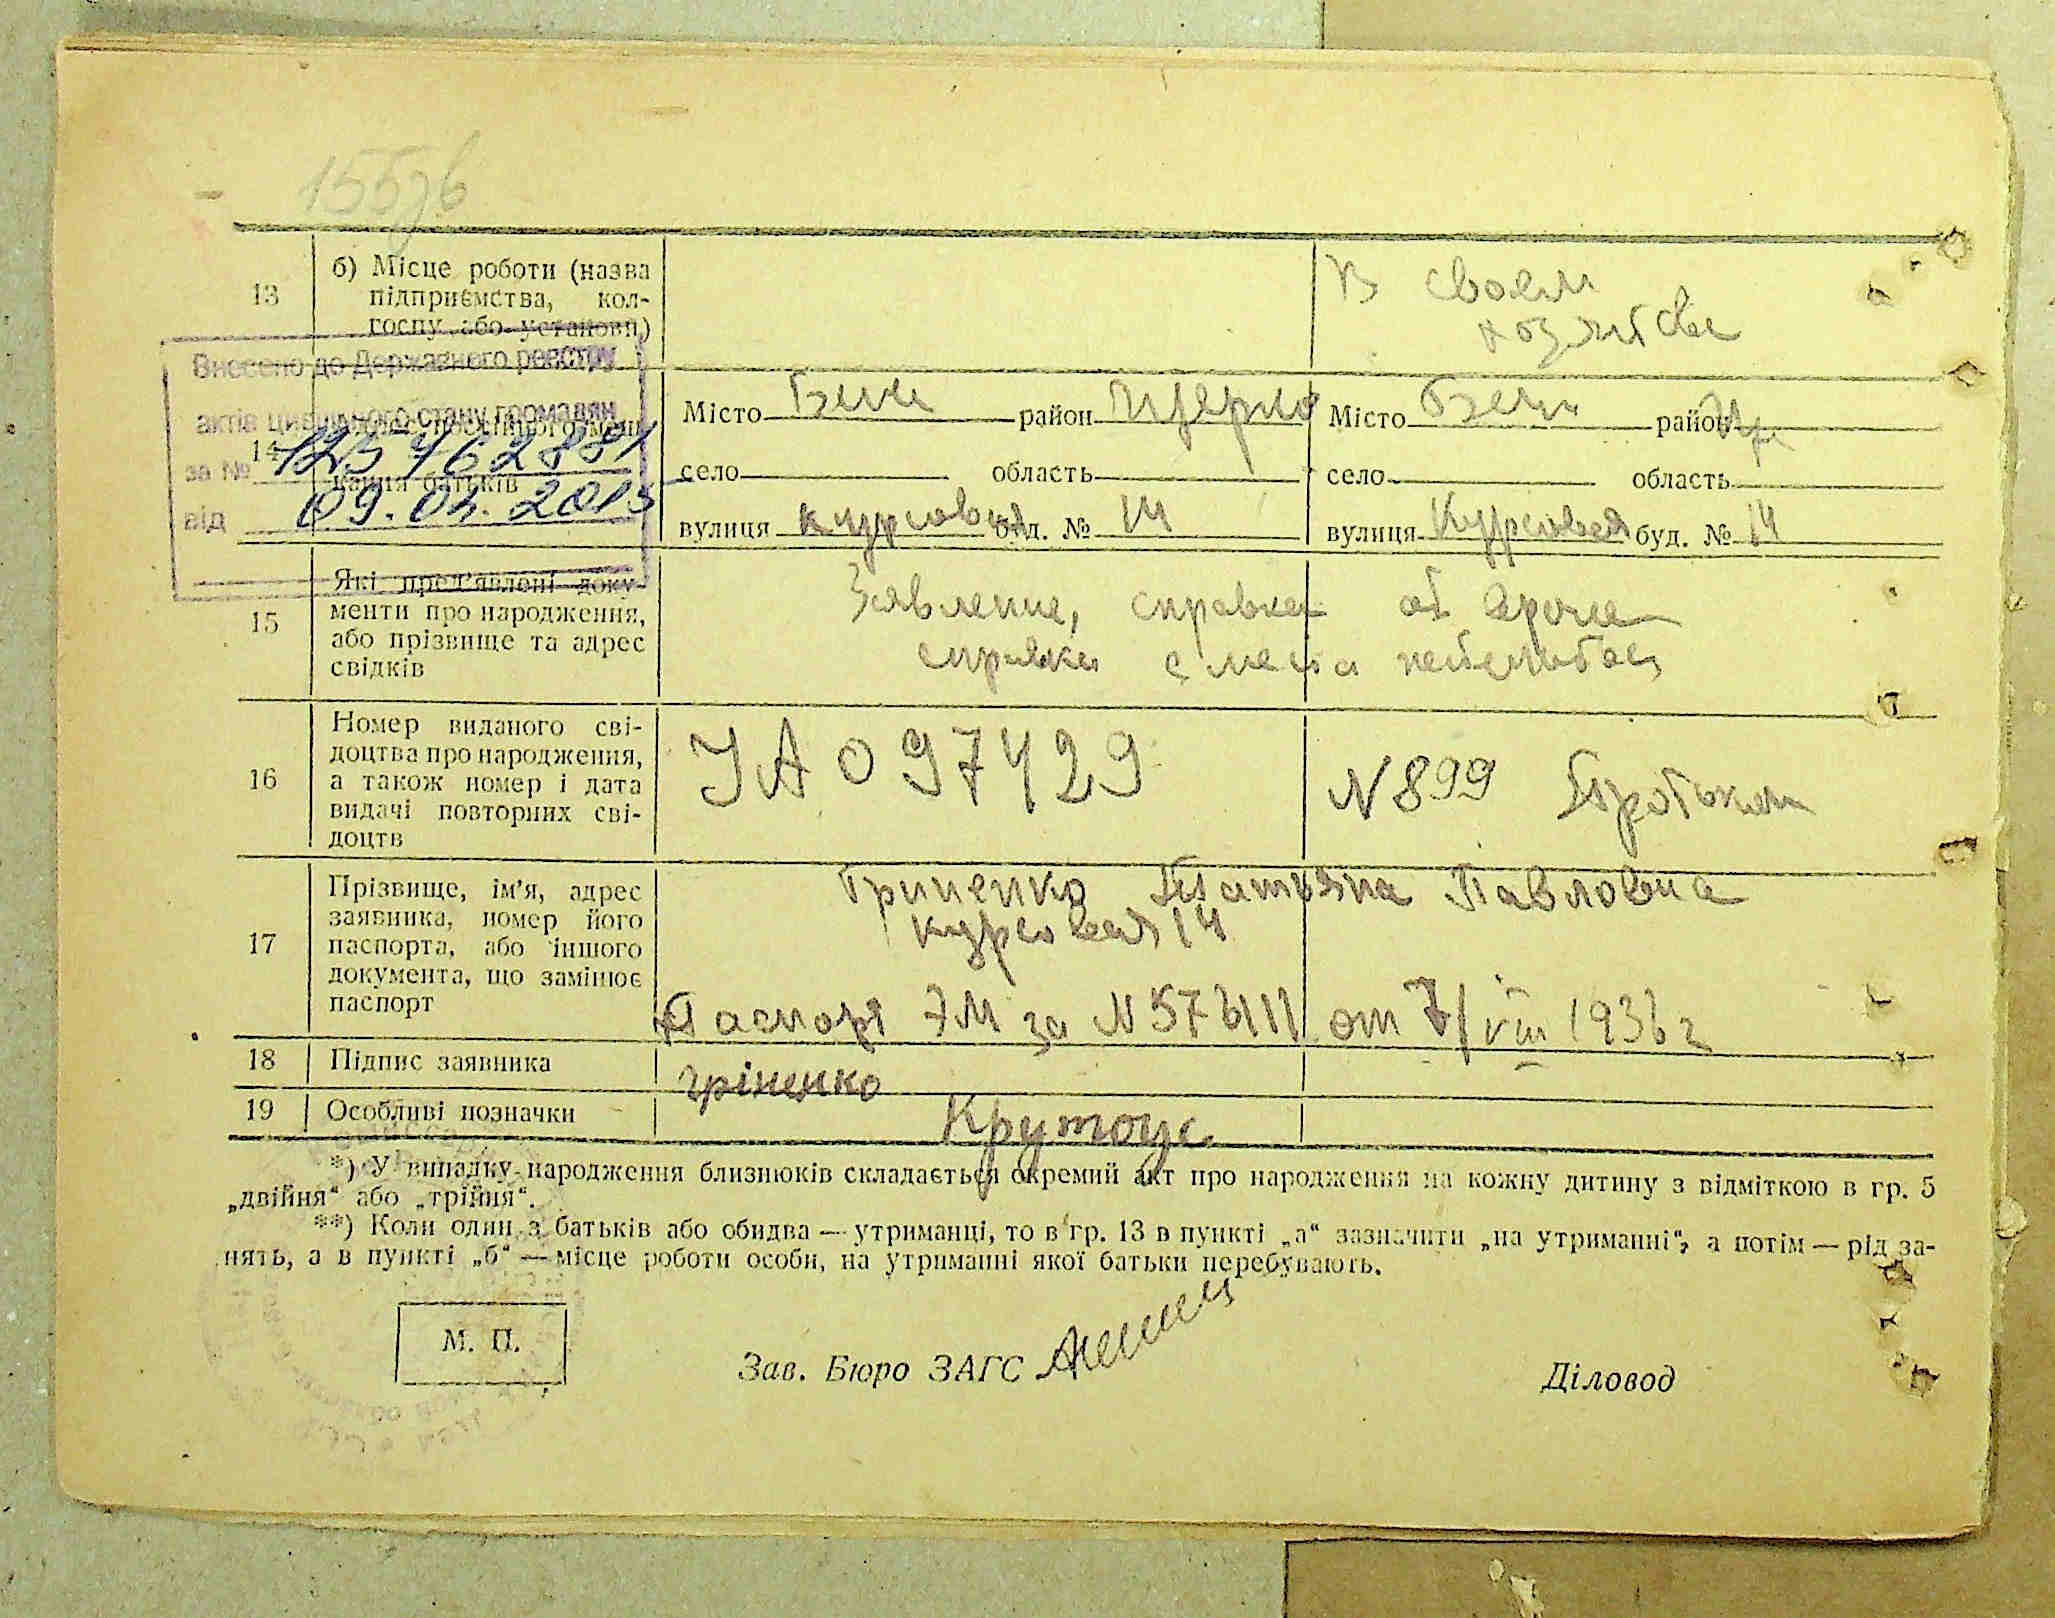 13
б) Місце роботи (назва
підприємства, кол-
госпу або установи)
В своем
Внесено до Державного реєстру
актів цивільного стану громадян
за №
від 09.04.2013
14
кання батьків
Місто район
село область
вулиця Курсовая буд. № 14
Місто район
село область
вулиця Курсовая буд. № 14
15
Які пред'явлені доку-
менти про народження,
або прізвище та адрес
свідків
Заявление, справка от врача
справка с места
16
Номер виданого сві-
доцтва про народження,
а також номер і дата
видачі повторних сві-
доцтв
УА 097429
N 899
17
Прізвище, ім'я, адрес
заявника, номер його
паспорта, або іншого
документа, що замінює
паспорт
Гриненко Татьяна Павловна
Курсовая 14
Паспорт ЭМ за N от 7/VIII 1936 г
18
Підпис заявника
гріненко
19
Особливі позначки
*) У випадку народження близнюків складається окремий акт про народження на кожну дитину з відміткою в гр. 5
„двійня“ або „трійня“.
**) Коли один з батьків або обидва — утриманці, то в гр. 13 в пункті „а“ зазначити „на утриманні“, а потім — рід за-
нять, а в пункті „б“ — місце роботи особи, на утриманні якої батьки перебувають.
М. П.
Зав. Бюро ЗАГС
Діловод